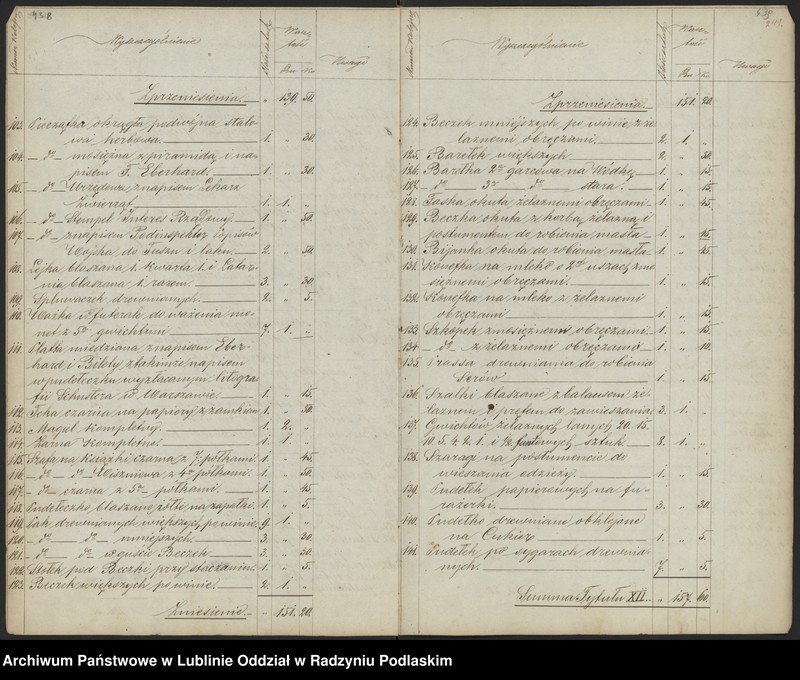 558
Wyszczególnienie
Ilość sztuk
Wartość
Rs. Ko.
Uwagi
Z przeniesienia. — „ 139. 50.
103. Pieczątka okrągła podwójna stalo-
wa herbowa. 1. „ 30.
104. — do — mosiężna z piramidą i na-
pisem F. Eberhard. 1. „ 30.
105. — do — Urzędowa z napisem Lekarz
Zwierząt 1. 1. „
106. — do — Stempel Interes Rządowy. 1. „ 50.
107. — do — z napisem Podinspektor
Wojska do Tuszu i laku. 2. „ 50.
108. Lejka blaszana 1. kwarta 1. i Latar-
nia blaszana 1. razem. 3. „ 30.
109. Spluwaczek drewnianych. 2. „ 5.
110. Ważka w futerale do ważenia mo-
net z 5a gwichtami 7. 1. „
111. Platka miedziana z napisem Eber-
hard i Bilety z takimże napisem
w pudełeczku wyzłacanym litogra-
fii Schustera w Warszawie. 1. „ 15.
112. Teka czarna na papiery z zamkiem 1. „ 50.
113. Magiel kompletny. 1. 2. „
114. Żarna kompletne. 1. 1. „
115. Szafa na książki czarna z 7. półkami. 1. „ 45.
116. — do — do — Wiszniowa z 4a półkami. 1. „ 50.
117. — do — czarna z 5a półkami. 1. „ 45
118. Pudełeczko blaszane żółte na zapałki. 1. „ 5.
119. Pak drewnianych większych po winie. 9. 1. „
120. — do — do — mniejszych. 3. „ 30.
121. — do — do — w guście Beczek 3. „ 30.
122. Stołek pod Beczki przy staczaniu. 1. „ 5.
123. Beczek większych po winie. 2. 1. „
Zniesienie. — „ 151. 20.
559
Wyszczególnienie
Ilość sztuk
Wartość
Rs. Ko.
Uwagi
Z przeniesienia. — „ 151. 20.
124. Beczek mniejszych po winie z że-
laznemi obręczami. 2. 1. „
125. Baryłek większych 2. „ 50.
126. Baryłka 2u garcowa na Wódkę. 1. „ 15.
127. — do — 3u — do — stara. 1. „ 15.
128. Faska okuta żelaznemi obręczami. 1. „ 45.
129. Beczka okuta z korbą żelazną i
postumentem do robienia masła 1. „ 45.
130. Bijanka okuta do robienia masła 1. „ 45.
131. Konefka na mleko o 2ch uszach z mo-
siężnemi obręczami. 1. „ 15.
132. Konefka na mleko z żelaznemi
obręczami 1. „ 15.
133. Szkopek z mosiężnemi obręczami. 1. „ 15.
134 — do — z żelaznemi obręczami 1. „ 10.
135. Prassa drewniania do robienia
Serów 1. „ 15.
136. Szalki blaszane z balansem że-
laznem z prętem do zawieszania. 3. 1. „
137. Gwichtów żelaznych lanych 20. 15.
10. 5. 4. 2. 1. i ½ funtowych sztuk. 8. 1. „
138. Szaragi na postumencie do
wieszania odzieży. 1. „ 15.
139. Pudełek papierowych na fu-
rażerki. 3. „ 30.
140. Pudełko drewniane obklejone
na Cukier 1. „ 5.
141. Pudełek po sygarach drewnia-
nych. 7. „ 5.
Summa Tytułu XII. „ 157. 60.
Archiwum Państwowe w Lublinie Oddział w Radzyniu Podlaskim